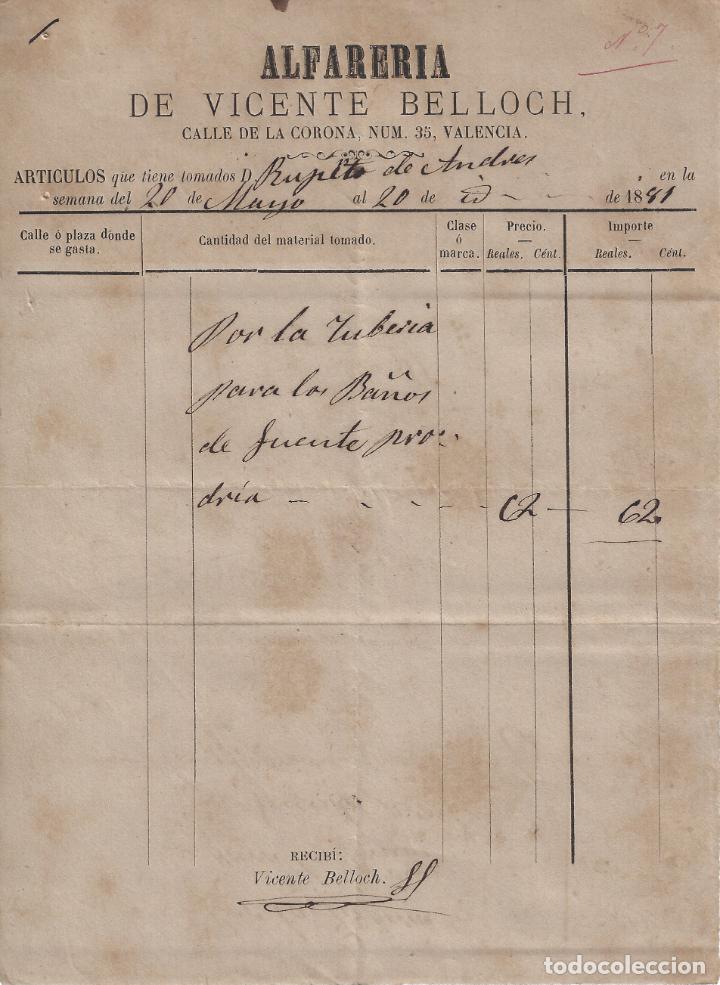 Nº 7.
ALFARERIA
DE VICENTE BELLOCH,
CALLE DE LA CORONA, NUM. 35, VALENCIA.
ARTICULOS que tiene tomados D Ruperto de Andres en la
semana del 20 de Mayo al 20 de id - - de 1881
Calle ó plaza donde se gasta. Cantidad del material tomado. Clase ó marca. Precio. Reales. Cént. Importe Reales. Cént.
Por la Tuberia
para los Baños
de fuente pro-
dria - - - - 62 - 62
RECIBÍ:
Vicente Belloch.
todocoleccion.net